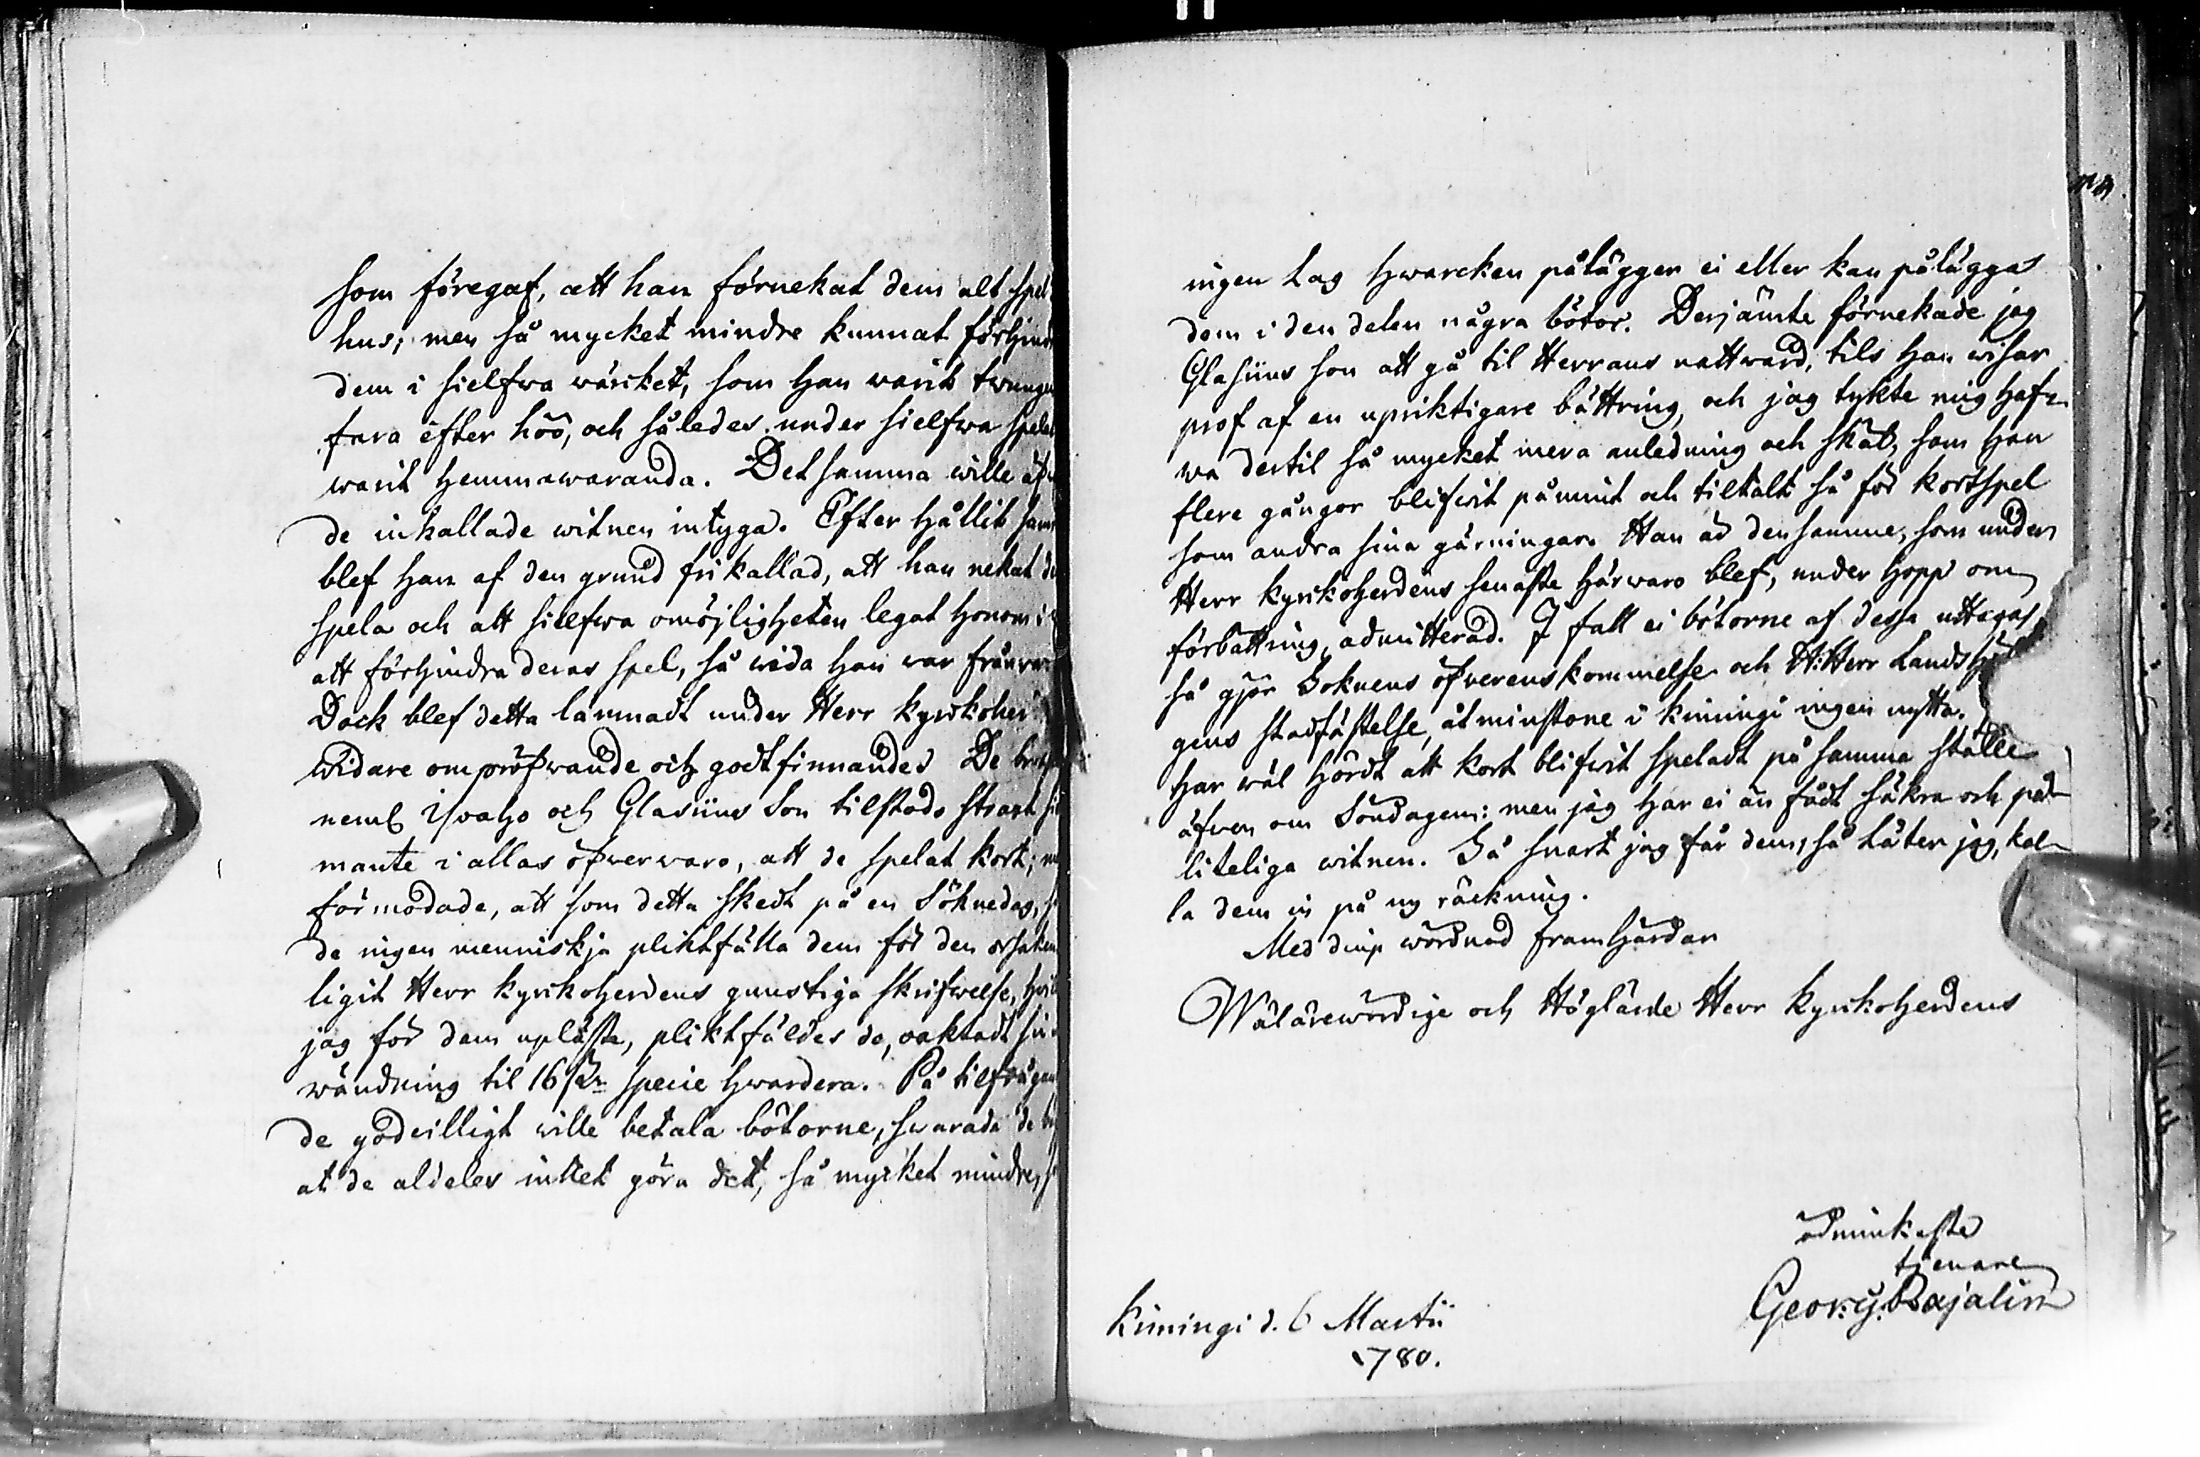 som föregaf, att han förnekat dem alt spel
hus; men så mycket mindre kunnat förhind
dem i sielfwa wärcket, som han warit twungen
fara efter höö, och således under sielfwa spelet
warit hemmawaranda. Det samma wille
de inkallade witnen intyga. Efter hållit
blef han af den grund frikallad, att han nekat
spela och att sielfwa omöjligheten legat honom i
att förhindra deras spel, så wida han war
Dock blef detta lämnadt under Herr Kyrkoher
widare ompröfwande och godtfinnandes De
neml och Glasiins Son tilstodo strax
mante i allas öfwerwaro, att de spelat kort;
förmodade, att som detta skedt på en Söknedag,
de ingen menniskja pliktfälla dem för den orsaken
ligit Herr Kyrkoherdens gunstiga skrifwelse,
jag för dem upläste, pliktfäldes de, oaktadt
wändning til 16 specie hwardera. På tilfrågan
de godwilligt wille betala böterne, swarade de
at de aldeles intet göra det, så mycket mindre,
ingen Lag hwarcken pålägger ei eller kan påläggas
dem i den delen några bötor. Derjämte förnekade jag
Glasiins son att gå til Herrans nattward, tils han wisar
prof af en upriktigare bättring, och jag tykte mig haf-
wa dertil så mycket mera anledning och skäl, som han
flere gångor blifwit påmint och tiltalt så för kortspel
som andra sina gärningar. Han är densamme, som under
Herr Kyrkoherdens senaste härwaro blef, under hopp om
förbättring, admitterad. I fall ei böterne af dessa uttagas
så gjör Soknens öfverenskommelse och H: Herr Landshöf
gens stadfästelse, åtminstone i Kiimingi ingen nytta.
har wäl hördt att kort blifwit speladt på samma ställe
äfwen om Söndagen: men jag har ei än fådt säkra och på-
liteliga witnen. Så snart jag får dem, så låter jag, kal-
la dem in på ny räckning.
Med diup wördnad framhärdar
Wälärewördige och Höglärde Herr Kyrkoherdens
ödmiukaste
tjenare
Georg. Pajalin
Kiimingi d. 6 Martii
1780.